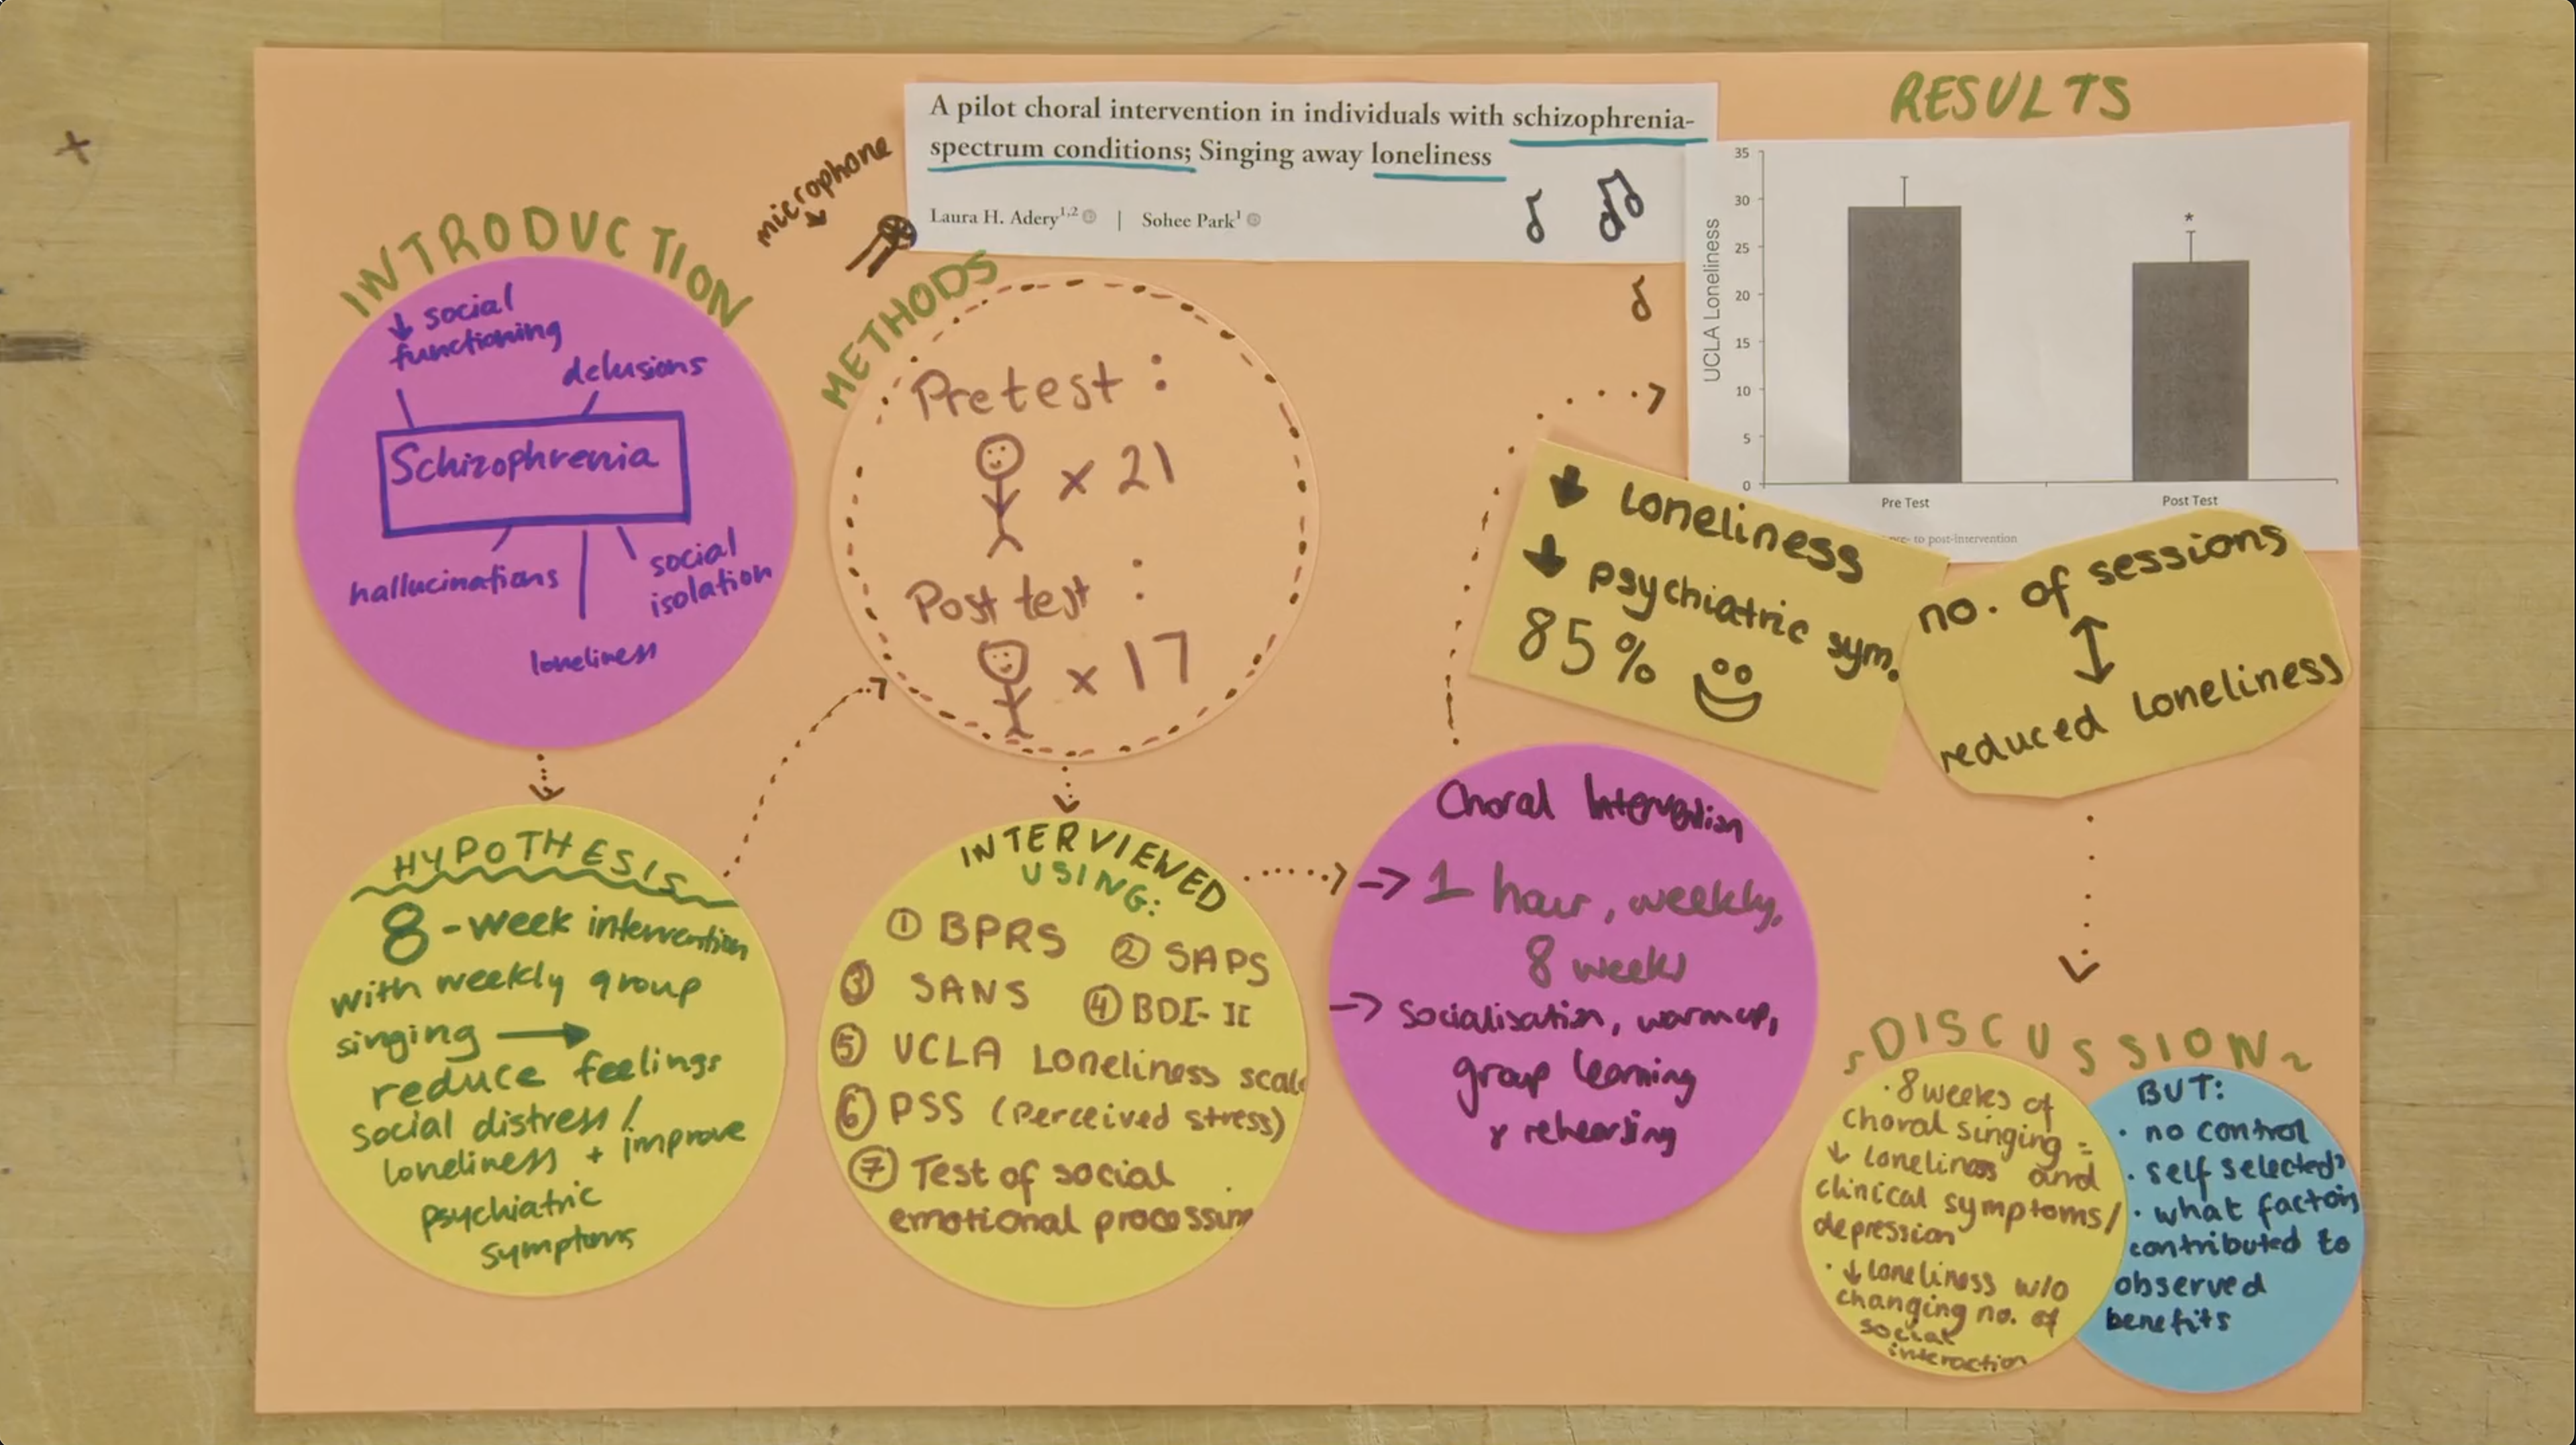 A pilot choral intervention in individuals with schizophrenia-
spectrum conditions; Singing away loneliness
Laura H. Adery1,2 | Sohee Park1
microphone
INTRODUCTION
↓ social
functioning
delusions
Schizophrenia
hallucinations
social
isolation
loneliness
HYPOTHESIS
8-week intervention
with weekly group
singing →
reduce feelings
social distress /
loneliness + improve
psychiatric
symptoms
METHODS
Pretest :
x 21
Post test :
x 17
INTERVIEWED
USING:
① BPRS ② SAPS
③ SANS ④ BDI-II
⑤ UCLA Loneliness scale
⑥ PSS (Perceived stress)
⑦ Test of social
emotional processing
Choral Intervention
→ 1 hour, weekly,
8 weeks
→ Socialisation, warmup,
group learning
& rehearsing
RESULTS
UCLA Loneliness
35
30
25
20
15
10
5
0
*
Pre Test
Post Test
pre- to post-intervention
↓ loneliness
↓ psychiatric sym.
85%
no. of sessions
↕
reduced loneliness
DISCUSSION
· 8 weeks of
choral singing =
↓ loneliness and
clinical symptoms/
depression
· ↓ loneliness w/o
changing no. of
social
interaction
BUT:
· no control
· self selected?
· what factors
contributed to
observed
benefits